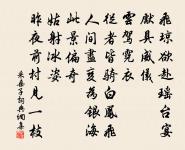 飛瓊欲赴瑤台宴
獻具威儀
雲駕霓衣
從者皆騎白鳳飛
人間盡變為銀海
此景偏奇
姑射冰姿
昨夜前村見一枝
采桑子詞典網集